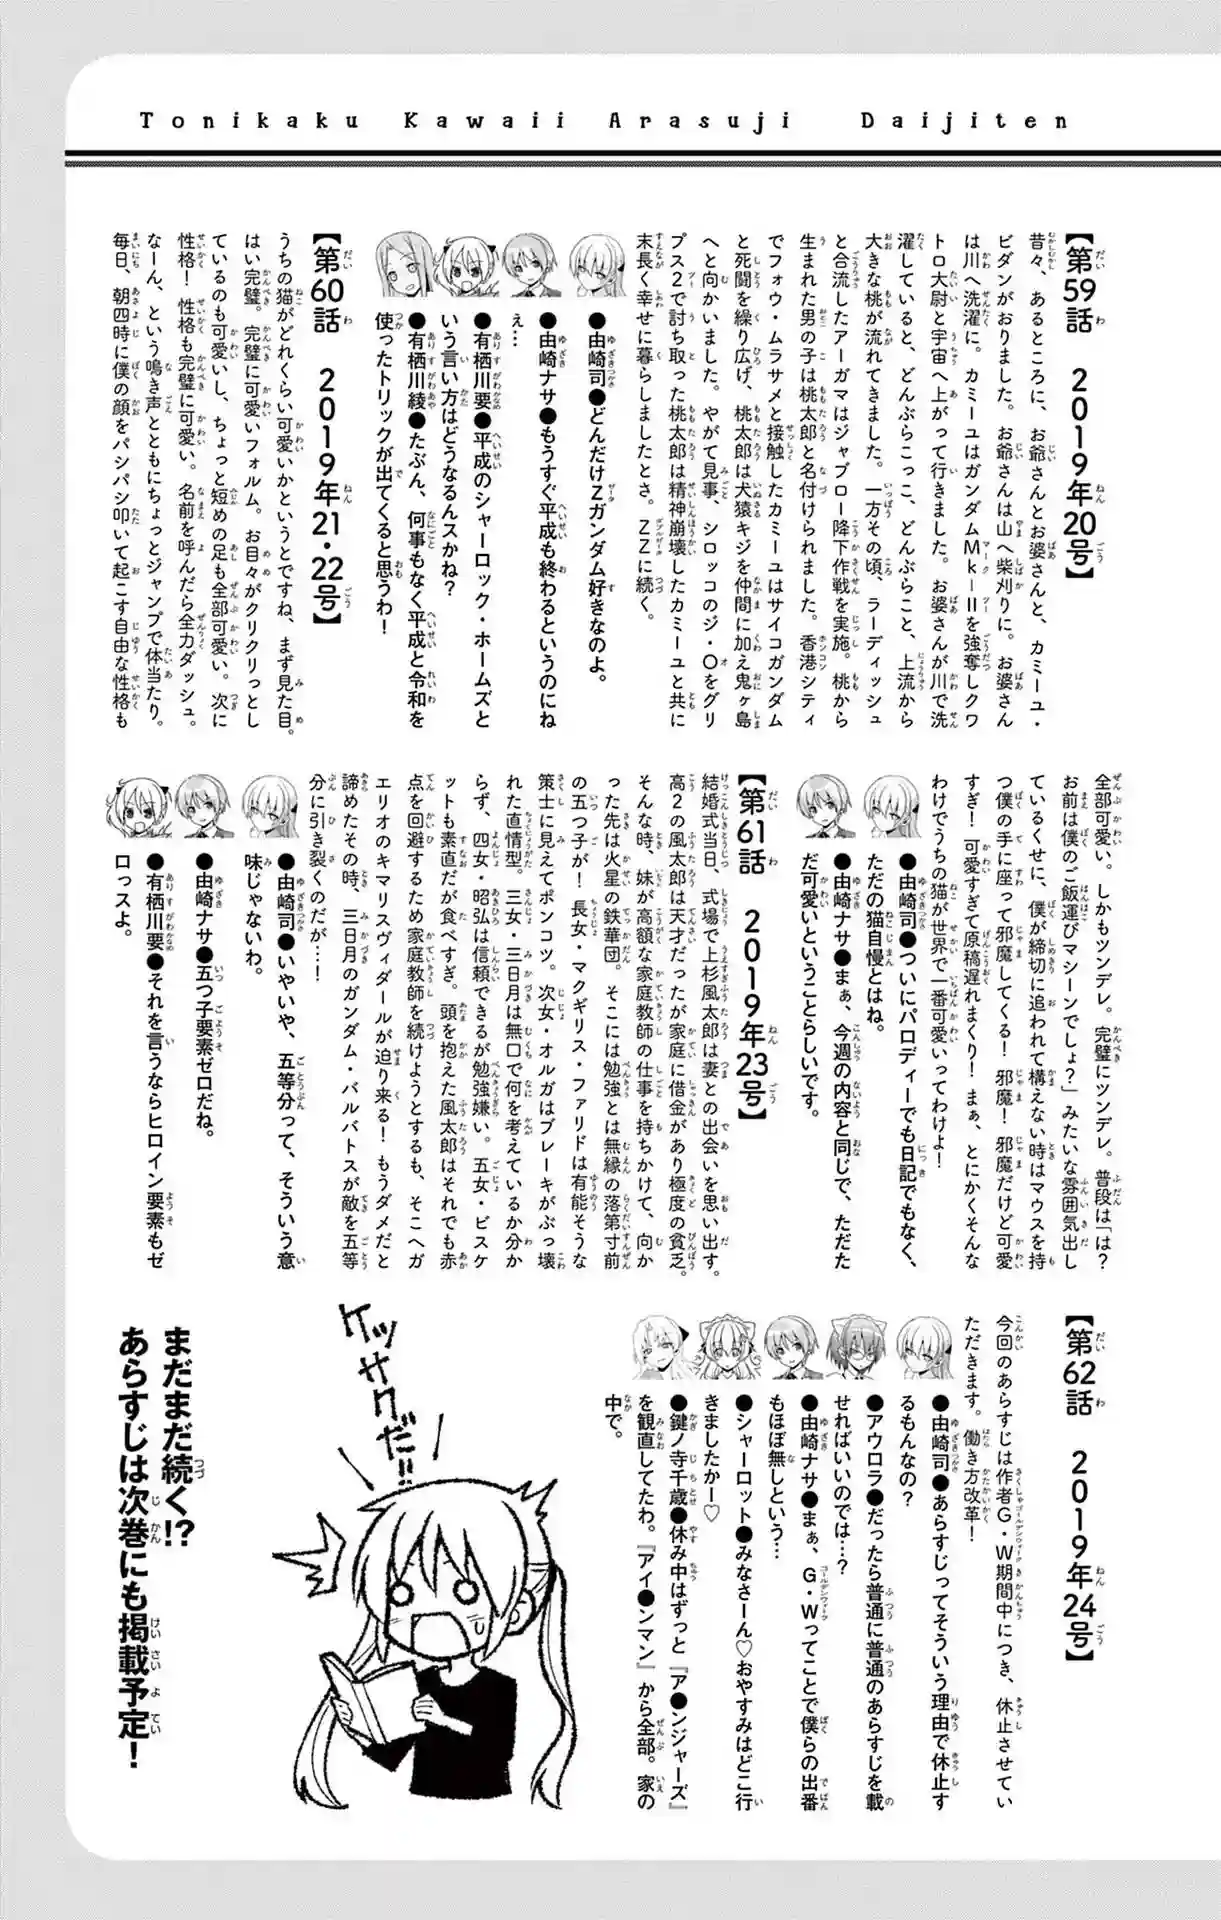 Tonikaku Kawaii Arasuji Daijiten
【第59話 2019年20号】
昔々、あるところに、お爺さんとお婆さんと、カミーユ・
ビダンがおりました。お爺さんは山へ柴刈りに。お婆さん
は川へ洗濯に。カミーユはガンダムMk-Ⅱを強奪しクワ
トロ大尉と宇宙へ上がって行きました。お婆さんが川で洗
濯していると、どんぶらこっこ、どんぶらこと、上流から
大きな桃が流れてきました。一方その頃、ラーディッシュ
と合流したアーガマはジャブロー降下作戦を実施。桃から
生まれた男の子は桃太郎と名付けられました。香港シティ
でフォウ・ムラサメと接触したカミーユはサイコガンダム
と死闘を繰り広げ、桃太郎は犬猿キジを仲間に加え鬼ヶ島
へと向かいました。やがて見事、シロッコのジ・Oをグリ
プス2で討ち取った桃太郎は精神崩壊したカミーユと共に
末長く幸せに暮らしましたとさ。ZZに続く。
●由崎司●どんだけZガンダム好きなのよ。
●由崎ナサ●もうすぐ平成も終わるというのにね
ぇ…
●有栖川要●平成のシャーロック・ホームズと
いう言い方はどうなるんスかね?
●有栖川綾●たぶん、何事もなく平成と令和を
使ったトリックが出てくると思うわ!
【第60話 2019年21・22号】
うちの猫がどれくらい可愛いかというとですね、まず見た目。
はい完璧。完璧に可愛いフォルム。お目々がクリクリっとし
ているのも可愛いし、ちょっと短めの足も全部可愛い。次に
性格!性格も完璧に可愛い。名前を呼んだら全力ダッシュ。
なーん、という鳴き声とともにちょっとジャンプで体当たり。
毎日、朝四時に僕の顔をパシパシ叩いて起こす自由な性格も
全部可愛い。しかもツンデレ。完璧にツンデレ。普段は「は?
お前は僕のご飯運びマシーンでしょ?」みたいな雰囲気出し
ているくせに、僕が締切に追われて構えない時はマウスを持
つ僕の手に座って邪魔してくる!邪魔!邪魔だけど可愛
すぎ!可愛すぎて原稿遅れまくり!まぁ、とにかくそんな
わけでうちの猫が世界で一番可愛いってわけよ!
●由崎司●ついにパロディーでも日記でもなく、
ただの猫自慢とはね。
●由崎ナサ●まぁ、今週の内容と同じで、ただた
だ可愛いということらしいです。
【第61話 2019年23号】
結婚式当日、式場で上杉風太郎は妻との出会いを思い出す。
高2の風太郎は天才だったが家庭に借金があり極度の貧乏。
そんな時、妹が高額な家庭教師の仕事を持ちかけて、向か
った先は火星の鉄華団。そこには勉強とは無縁の落第寸前
の五つ子が!長女・マクギリス・ファリドは有能そうな
策士に見えてポンコツ。次女・オルガはブレーキがぶっ壊
れた直情型。三女・三日月は無口で何を考えているか分か
らず、四女・昭弘は信頼できるが勉強嫌い。五女・ビスケ
ットも素直だが食べすぎ。頭を抱えた風太郎はそれでも赤
点を回避するため家庭教師を続けようとするも、そこへガ
エリオのキマリスヴィダールが迫り来る!もうダメだと
諦めたその時、三日月のガンダム・バルバトスが敵を五等
分に引き裂くのだが…!
●由崎司●いやいや、五等分って、そういう意
味じゃないわ。
●由崎ナサ●五つ子要素ゼロだね。
●有栖川要●それを言うならヒロイン要素もゼ
ロっスよ。
【第62話 2019年24号】
今回のあらすじは作者G・W期間中につき、休止させてい
ただきます。働き方改革!
●由崎司●あらすじってそういう理由で休止す
るもんなの?
●アウロラ●だったら普通に普通のあらすじを載
せればいいのでは…?
●由崎ナサ●まぁ、G・Wってことで僕らの出番
もほぼ無しという…
●シャーロット●みなさーん♡おやすみはどこ行
きましたかー♡
●鍵ノ寺千歳●休み中はずっと『ア●ンジャーズ』
を観直してたわ。『アイ●ンマン』から全部。家の
中で。
ケッサクだ!!
まだまだ続く!?
あらすじは次巻にも掲載予定!